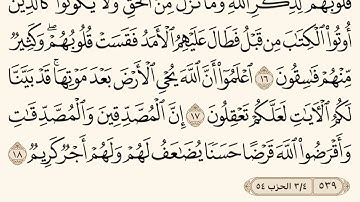 قُلُوبُهُمْ لِذِكْرِ ٱللَّهِ وَمَا نَزَلَ مِنَ ٱلْحَقِّ وَلَا يَكُونُوا۟ كَٱلَّذِينَ
أُوتُوا۟ ٱلْكِتَٰبَ مِن قَبْلُ فَطَالَ عَلَيْهِمُ ٱلْأَمَدُ فَقَسَتْ قُلُوبُهُمْ ۖ وَكَثِيرٌ
مِّنْهُمْ فَٰسِقُونَ ١٦ ٱعْلَمُوٓا۟ أَنَّ ٱللَّهَ يُحْىِ ٱلْأَرْضَ بَعْدَ مَوْتِهَا ۚ قَدْ بَيَّنَّا
لَكُمُ ٱلْـَٔايَٰتِ لَعَلَّكُمْ تَعْقِلُونَ ١٧ إِنَّ ٱلْمُصَّدِّقِينَ وَٱلْمُصَّدِّقَٰتِ
وَأَقْرَضُوا۟ ٱللَّهَ قَرْضًا حَسَنًا يُضَٰعَفُ لَهُمْ وَلَهُمْ أَجْرٌ كَرِيمٌ ١٨
٥٣٩ ٣/٤ الحزب ٥٤